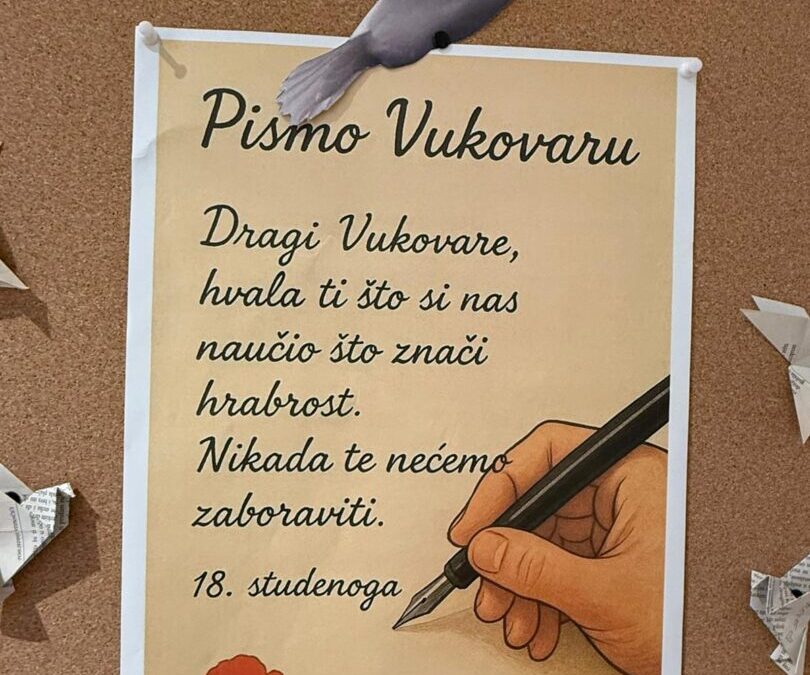 Pismo Vukovaru
Dragi Vukovare,
hvala ti što si nas
naučio što znači
hrabrost.
Nikada te nećemo
zaboraviti.
18. studenoga